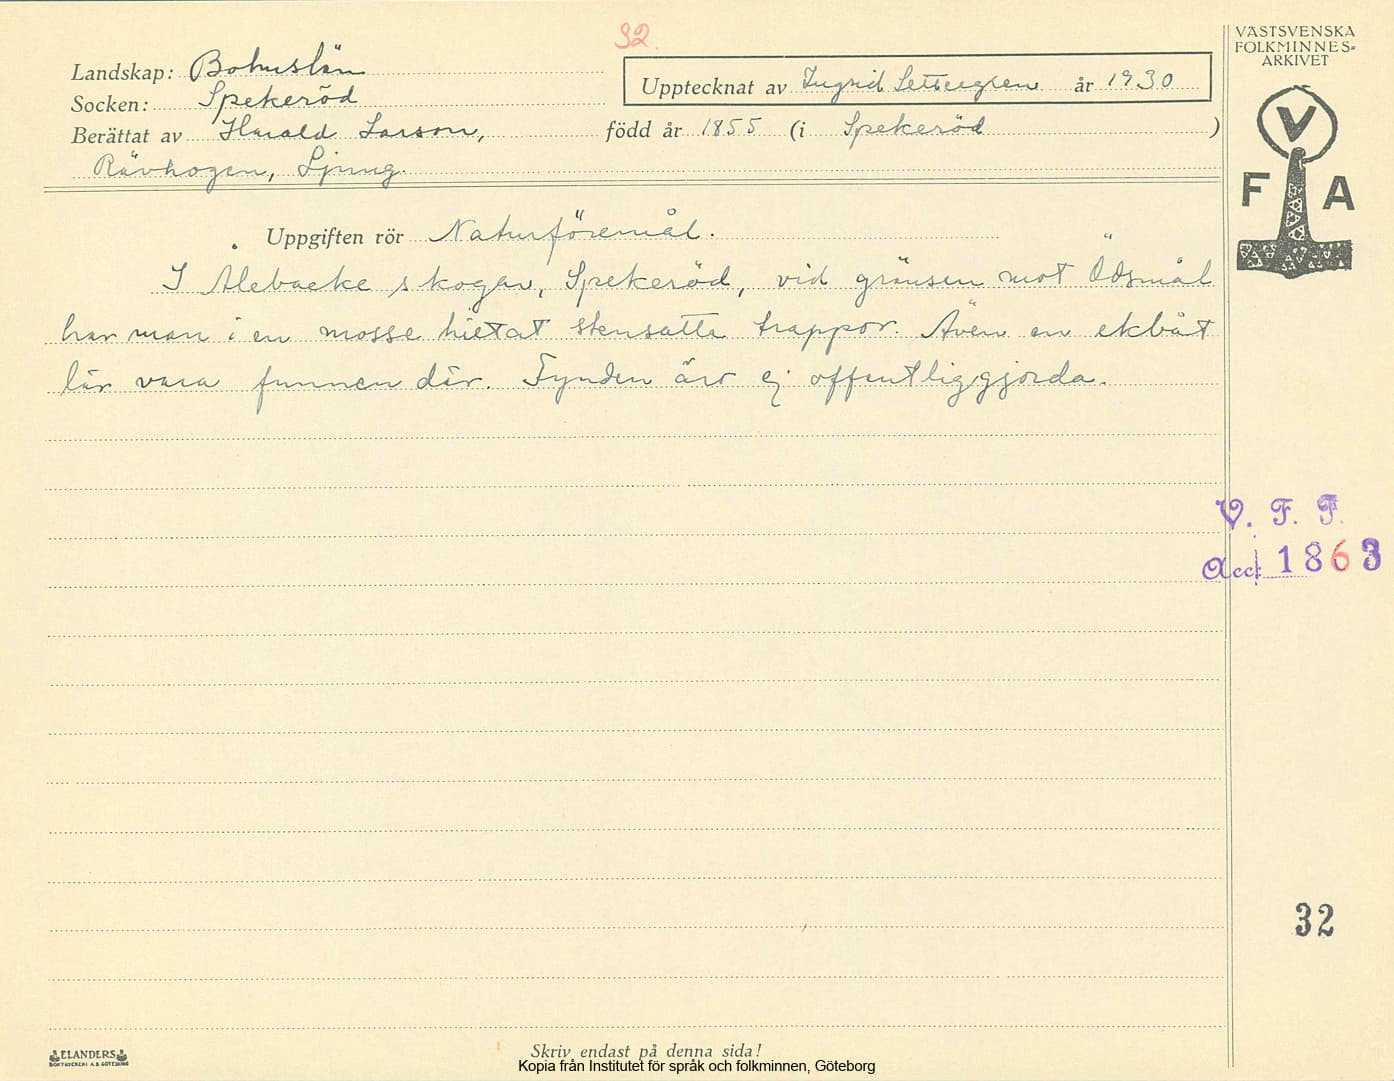 32.
VÄSTSVENSKA
FOLKMINNES-
ARKIVET
V
F A
Landskap: Bohuslän
Upptecknat av Ingrid Settergren år 1930
Socken: Spekeröd
Berättat av Harald Larson, född år 1855 (i Spekeröd )
Rävhogen, Ljung.
Uppgiften rör Naturföremål.
I Alebacke skogar, Spekeröd, vid gränsen mot Ödsmål
har man i en mosse hittat stensatta trappor. Även en ekbåt
lär vara funnen där. Fynden äro ej offentliggjorda.
V. F. F.
Acc: 1863
32
ELANDERS
BOKTRYCKERI A.B. GÖTEBORG
Skriv endast på denna sida!
Kopia från Institutet för språk och folkminnen, Göteborg